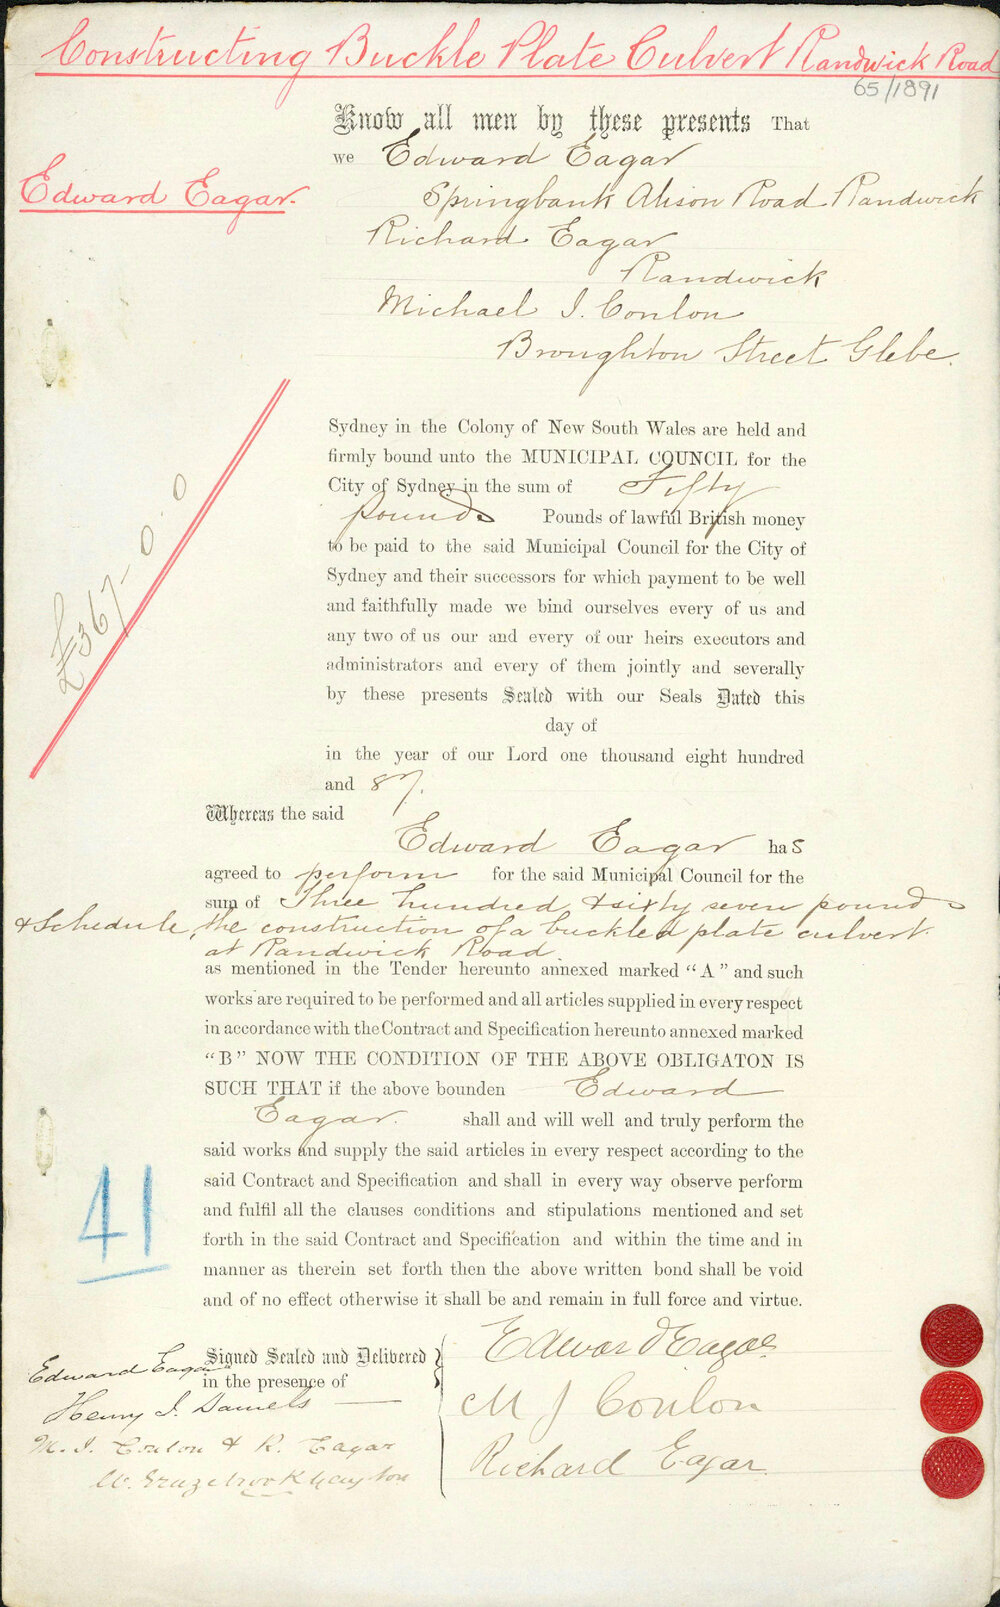 Constructing Buckle Plate Culvert Randwick Road
65/1891
Know all men by these presents That
we Edward Eagar
Edward Eagar.
Springbank Alison Road Randwick
Richard Eagar
Randwick
Michael J. Conlon
Broughton Street Glebe.
Sydney in the Colony of New South Wales are held and
firmly bound unto the MUNICIPAL COUNCIL for the
City of Sydney in the sum of Fifty
pounds Pounds of lawful British money
to be paid to the said Municipal Council for the City of
Sydney and their successors for which payment to be well
and faithfully made we bind ourselves every of us and
any two of us our and every of our heirs executors and
administrators and every of them jointly and severally
by these presents Sealed with our Seals Dated this
day of
in the year of our Lord one thousand eight hundred
and 87.
£367-0.0
Whereas the said
Edward Eagar has
agreed to perform for the said Municipal Council for the
sum of Three hundred & sixty seven pounds
& Schedule, the construction of a buckled plate culvert
at Randwick Road
as mentioned in the Tender hereunto annexed marked "A" and such
works are required to be performed and all articles supplied in every respect
in accordance with the Contract and Specification hereunto annexed marked
"B" NOW THE CONDITION OF THE ABOVE OBLIGATON IS
SUCH THAT if the above bounden Edward
Eagar. shall and will well and truly perform the
said works and supply the said articles in every respect according to the
said Contract and Specification and shall in every way observe perform
and fulfil all the clauses conditions and stipulations mentioned and set
forth in the said Contract and Specification and within the time and in
manner as therein set forth then the above written bond shall be void
and of no effect otherwise it shall be and remain in full force and virtue.
41
Signed Sealed and Delivered
in the presence of
Edward Eagar
Henry J. Daniels
M. J. Conlon & R. Eagar
W.
Edward Eagar
M J Conlon
Richard Eagar.